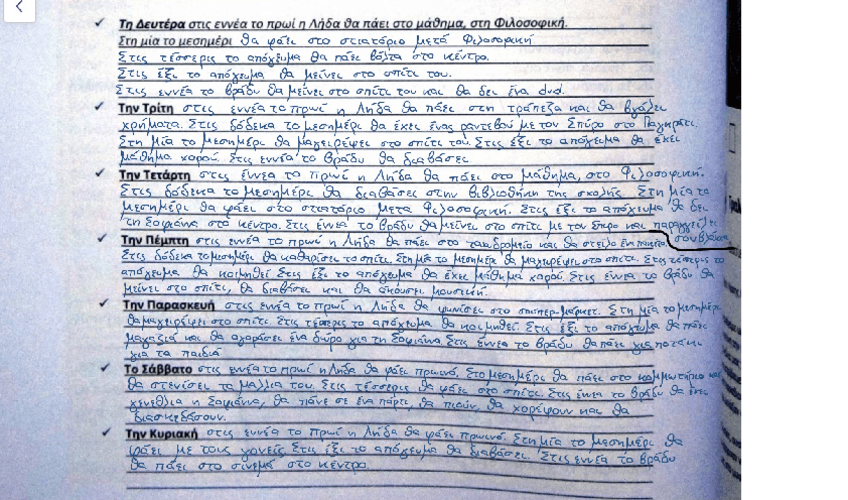 ✓ Τη Δευτέρα στις εννέα το πρωί η Λήδα θα πάει στο μάθημα, στη Φιλοσοφική.
Στη μία το μεσημέρι θα φάει στο στιατόριο μετά Φιλοσοφική
Στις τέσσερις το απόγευμα θα πάει βόλτα στο κέντρο.
Στις έξι το απόγευμα θα μείνει στο σπίτι του.
Στις εννέα το βράδυ θα μείνει στο σπίτι του και θα δει ένα dvd.
✓ Την Τρίτη στις εννέα το πρωί η Λήδα θα πάει στη τράπεζα και θα βγάλει
χρήματα. Στις δόδεκα το μεσημέρι θα έχει ένας ραντεβού με τον Σπύρο στο Παγκράτι.
Στη μία το μεσημέρι θα μαγειρέψει στο σπίτι του. Στις έξι το απόγευμα θα έχει
μάθημα χορού. Στις εννέα το βράδυ θα διαβάσει
✓ Την Τετάρτη στις εννέα το πρωί η Λήδα θα πάει στο μάθημα, στο Φιλοσοφική.
Στις δόδεκα το μεσημέρι θα διαβάσει στην βιβλιοθήκη της σχολής. Στη μία το
μεσημέρι θα φάει στο στιατόριο μετα Φιλοσοφική. Στις έξι το απόγευμα θα δει
τη Σοφιάνα στο κέντρο. Στις εννέα το βράδυ θα μείνει στο σπίτι με τον και παραγγείλει
σουβλάκια
✓ Την Πέμπτη στις εννέα το πρωί η Λήδα θα πάει στο ταχυδρομείο και θα στείλει ένα
Στις δόδεκα το μεσημέρι θα καθαρίσει το σπίτι. Στη μία το μεσημέρι θα μαγειρέψει στο σπίτι. Στις τέσσερις το
απόγευμα θα κοιμηθεί Στις έξι το απόγευμα θα έχει μάθημα χορού. Στις εννέα το βράδυ θα
μείνει στο σπίτι, θα διαβάσει και θα ακούσει μουσική.
✓ Την Παρασκευή στις εννέα το πρωί η Λήδα θα ψωνίσει στο σούπερ-μάρκετ. Στη μία το μεσημέρι
θα μαγειρέψει στο σπίτι Στις τέσσερις το απόγευμα θα κοιμηθεί. Στις έξι το απόγευμα θα πάει
μαγαζιά και θα αγοράσει ένα δώρο για τη Σοφιάνα Στις εννέα το βράδυ θα πάει για
για τα παιδιά
✓ Το Σάββατο στις εννέα το πρωί η Λήδα θα φάει πρωινό. Στο μεσημέρι θα πάει στο κομμωτήριο και
θα στενίσει τα μαλλιά του. Στις τέσσερις θα φάει στο σπίτι. Στις εννέα το βράδυ θα έχει
γενέθλια η Σοφιάνα, θα πάνε σε ένα πάρτι, θα πιούν, θα χορέψουν και θα
διασκεδάσουν.
✓ Την Κυριακή στις εννέα το πρωί η Λήδα θα φάει πρωινό. Στη μία το μεσημέρι θα
φάει με τους γονείς. Στις έξι το απόγευμα θα διαβάσει. Στις εννέα το βράδυ
θα πάει στο σινεμά στο κέντρο.